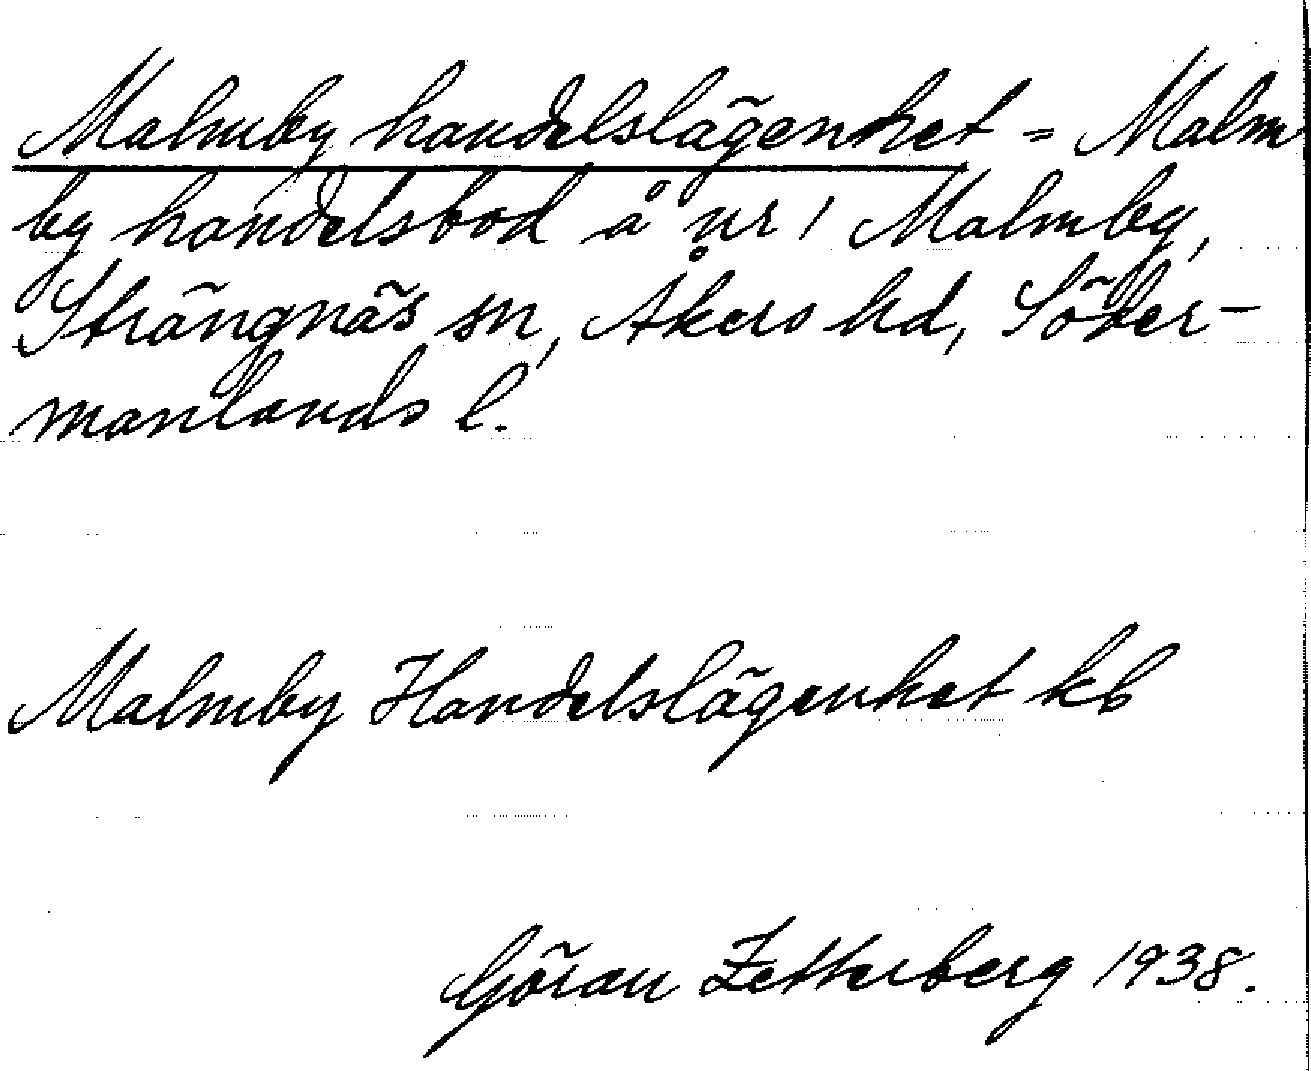 Malmby handelslägenhet = Malm
by handelsbod å nr 1 Malmby,
Strängnäs sn, Åkers hd, Söder-
manlands l.
Malmby Handelslägenhet kb
Göran Zetterberg 1938.